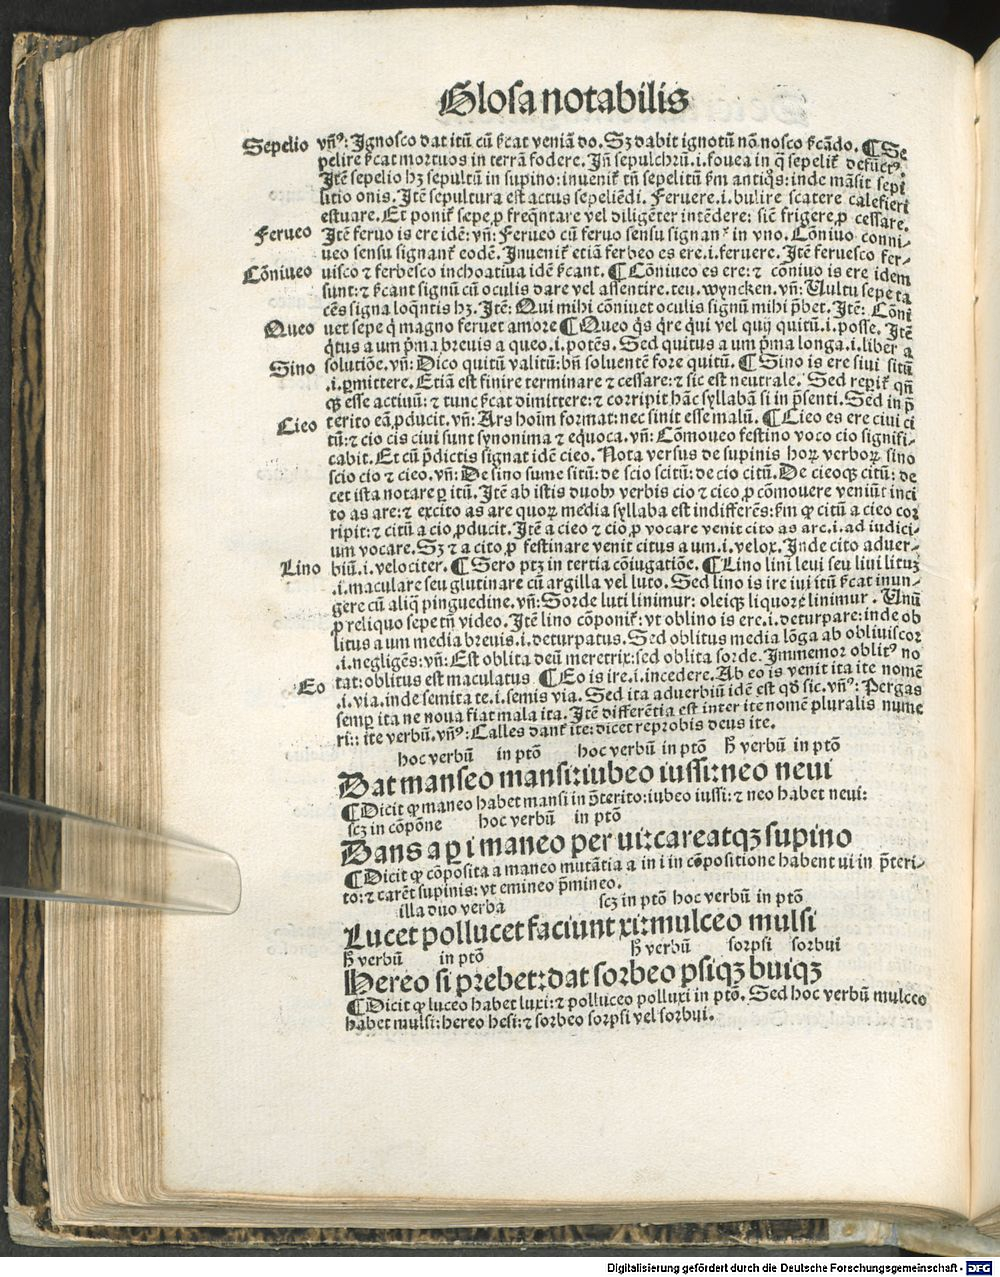 Glosa notabilis
Sepelio vñꝰ: Ignosco dat itũ cũ ſicat veniã do. Sꝫ dabit ignotũ nõ nosco ſicãdo. ¶ Se
pelire ſicat mortuos in terrã fodere. Iñ sepulchrũ .i. fouea in q̃ sepelit᷑ defũctꝰ.
Itẽ sepelio hꝫ sepultũ in supino: inuenit᷑ tñ sepelitũ ẜm antiq̃s: inde mãsit sepi
litio onis. Itẽ sepultura est actus sepeliẽdi. Feruere .i. bulire scatere calefieri
estuare. Et ponit᷑ sepe ꝓ freq̃ntare vel diligẽter intẽdere: sicut frigere ꝓ cessare.
Ferueo Itẽ feruo is ere idẽ: vñ: Ferueo cũ feruo sensu signant᷑ in vno. Cõniuo conni-
ueo sensu signant᷑ eodẽ. Inuenit᷑ etiã ferbeo es ere .i. feruere. Itẽ feruesco fer-
Cõniueo uisco ⁊ ferbesco inchoatiua idẽ ſicant. ¶ Cõniueo es ere: ⁊ cõniuo is ere idem
sunt: ⁊ ſicant signũ cũ oculis dare vel assentire. teu. wyncken. vñ: Uultu sepe ta
cẽs signa loq̃ntis hꝫ. Itẽ: Qui mihi cõniuet oculis signũ mihi p̃bet. Itẽ: Cõni
Queo uet sepe q̃ magno feruet amore ¶ Queo q̃s q̃re q̃ui vel quij quitũ .i. posse. Itẽ
q̃tus a um p̃ma breuis a queo .i. potẽs. Sed quitus a um p̃ma longa .i. liber a
Sino solutiõe. vñ: Dico quitũ valitũ: bñ soluentẽ fore quitũ. ¶ Sino is ere siui sitũ
.i. ꝑmittere. Etiã est finire terminare ⁊ cessare: ⁊ sic est neutrale. Sed reꝑit᷑ qñ
qꝫ esse actiuũ: ⁊ tunc ſicat dimittere: ⁊ corripit hãc syllabã si in p̃senti. Sed in p̃
terito eã ꝓducit. vñ: Ars hoĩm format: nec sinit esse malũ. ¶ Cieo es ere ciui ci
Cieo tũ: ⁊ cio cis ciui sunt synonima ⁊ equoca. vñ: Cõmoueo festino voco cio signifi-
cabit. Et cũ p̃dictis signat idẽ cieo. Nota versus de supinis horꝝ verborꝝ sino
scio cio ⁊ cieo. vñ: De sino sume sitũ: de scio scitũ: de cio citũ. De cieoqꝫ citũ: de
cet ista notare ꝑ itũ. Itẽ ab istis duobꝰ verbis cio ⁊ cieo ꝓ cõmouere veniũt inci
to as are: ⁊ excito as are quorꝝ media syllaba est indifferẽs: ẜm ꝙ citũ a cieo cor
ripit: ⁊ citũ a cio ꝓducit. Itẽ a cieo ⁊ cio ꝓ vocare venit cito as are .i. ad iudici-
um vocare. Sꝫ ⁊ a cito ꝓ festinare venit citus a um .i. velox. Inde cito aduer-
Lino biũ .i. velociter. ¶ Sero ptꝫ in tertia cõiugatiõe. ¶ Lino lini leui seu liui lituꝫ
.i. maculare seu glutinare cũ argilla vel luto. Sed lino is ire iui itũ ſicat inun-
gere cũ aliq̃ pinguedine. vñ: Sorde luti linimur: oleiqꝫ liquore linimur. Unũ
ꝓ reliquo sepe tñ video. Itẽ lino cõponit᷑: vt oblino is ere .i. deturpare: inde ob
litus a um media breuis .i. deturpatus. Sed oblitus media lõga ab obliuiscor
.i. negligẽs: vñ: Est oblita deũ meretrix: sed oblita sorde. Immemor oblitꝰ no
Eo tat: oblitus est maculatus ¶ Eo is ire .i. incedere. Ab eo is venit ita ite nomẽ
.i. via. inde semita te .i. semis via. Sed ita aduerbiũ idẽ est qd̃ sic. vñꝰ: Pergas
semꝑ ita ne noua fiat mala ita. Itẽ differẽtia est inter ite nomẽ pluralis nume
ri: ⁊ ite verbũ. vñꝰ: Calles dant᷑ ite: dicet reprobis deus ite.
hoc verbũ in ptõ hoc verbũ in ptõ ħ verbũ in ptõ
Dat manseo mansi: iubeo iussi: neo neui
¶ Dicit ꝙ maneo habet mansi in p̃terito: iubeo iussi: ⁊ neo habet neui:
scꝫ in cõpõne hoc verbũ in ptõ
Dans a ꝑ i maneo per ui: careatqꝫ supino
¶ Dicit ꝙ cõposita a maneo mutãtia a in i in cõpositione habent ui in p̃teri-
to: ⁊ carẽt supinis: vt emineo p̃mineo.
illa duo verba scꝫ in ptõ hoc verbũ in ptõ
Lucet pollucet faciunt xi: mulceo mulsi
ħ verbũ in ptõ ħ verbũ sorpsi sorbui
Hereo si prebet: dat sorbeo psiqꝫ buiqꝫ
¶ Dicit ꝙ luceo habet luxi: ⁊ polluceo polluxi in ptõ. Sed hoc verbũ mulceo
habet mulsi: hereo hesi: ⁊ sorbeo sorpsi vel sorbui.
Digitalisierung gefördert durch die Deutsche Forschungsgemeinschaft - DFG